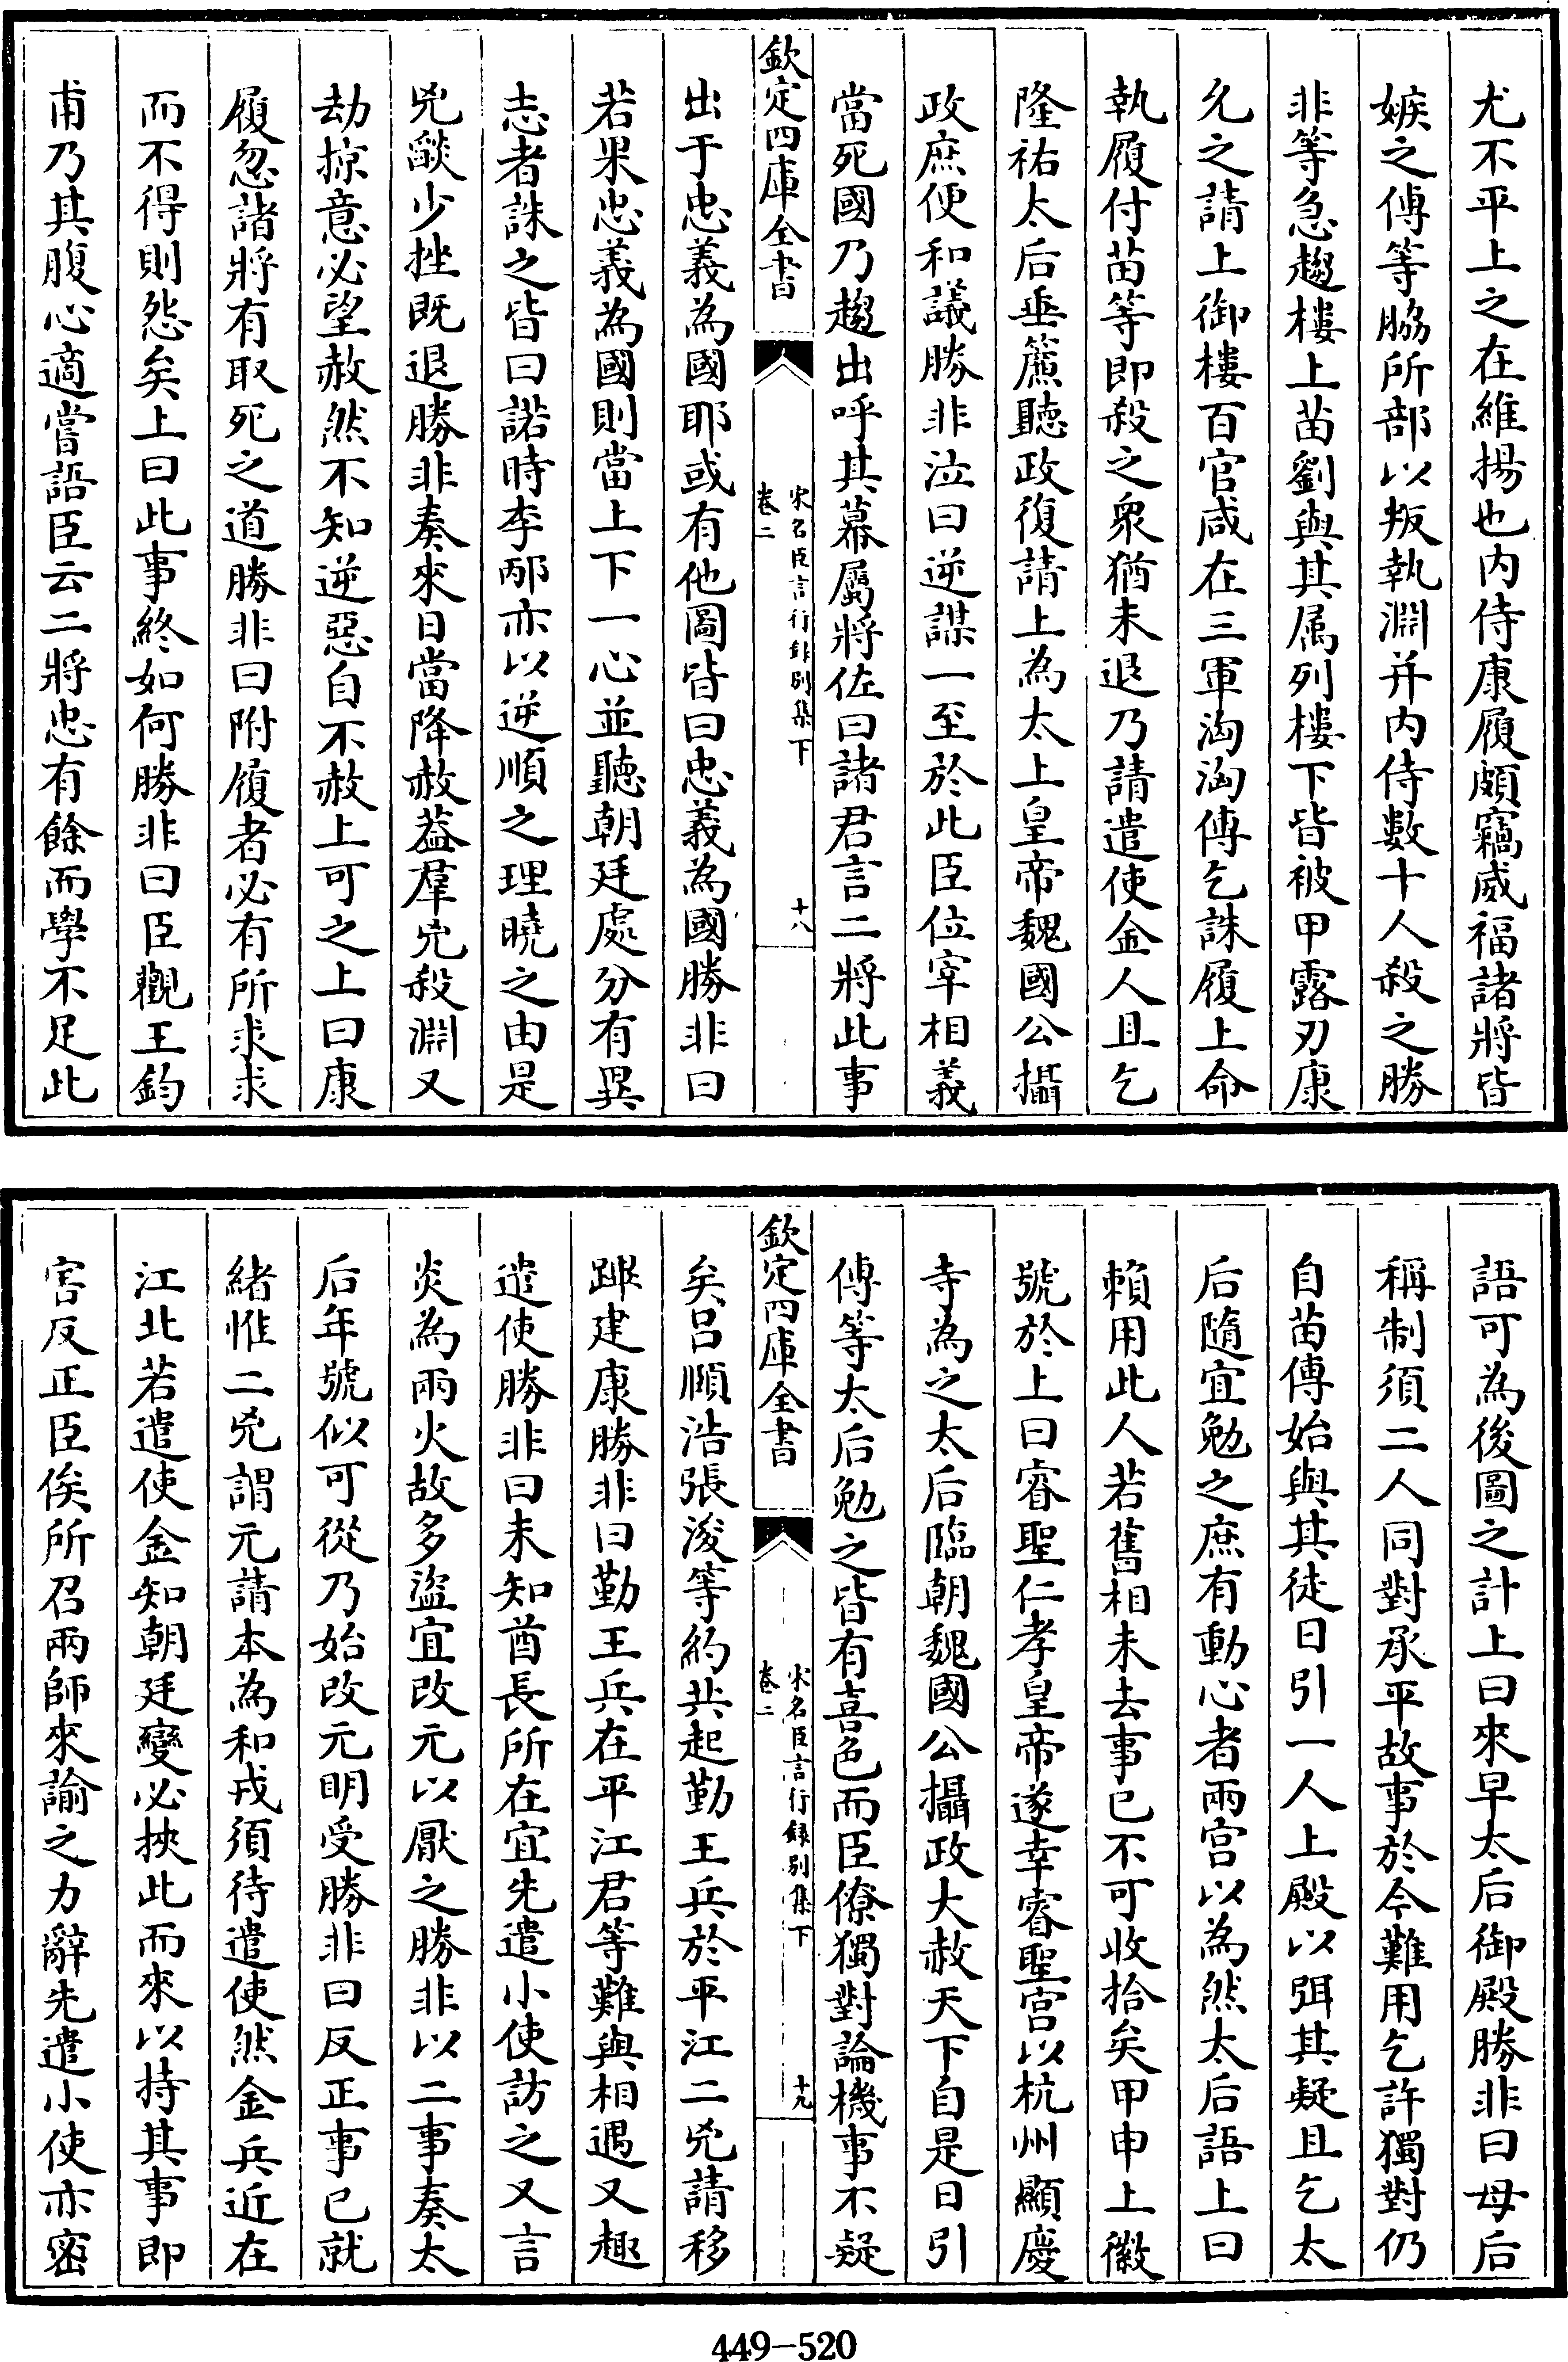 尤不平上之在維揚也内侍康履頗竊威福諸將皆
嫉之傅等脇所部以叛執淵并内侍數十人殺之勝
非等急趨樓上苗劉與其属列樓下皆被甲露刃康
允之請上御樓百官咸在三軍洶洶傅乞誅履上命
執履付苗等即殺之衆猶未退乃請遣使金人且乞
隆祐太后垂簾聽政復請上為太上皇帝魏國公攝
政庶便和議勝非泣曰逆謀一至於此臣位宰相義
當死國乃趨出呼其幕屬將佐曰諸君言二將此事
欽定四庫全書
宋名臣言行録别集下
卷二
十八
出于忠義為國耶或有他圖皆曰忠義為國勝非曰
若果忠義為國則當上下一心並聽朝廷處分有異
志者誅之皆曰諾時李邴亦以逆順之理曉之由是
兇燄少挫既退勝非奏來日當降赦葢羣兇殺淵又
劫掠意必望赦然不知逆惡自不赦上可之上曰康
履忽諸將有取死之道勝非曰附履者必有所求求
而不得則怨矣上曰此事終如何勝非曰臣觀王鈞
甫乃其腹心適嘗語臣云二將忠有餘而學不足此
語可為後圖之計上曰來早太后御殿勝非曰母后
稱制須二人同對承平故事於今難用乞許獨對仍
自苗傅始與其徒日引一人上殿以弭其疑且乞太
后隨宜勉之庶有動心者兩宫以為然太后語上曰
賴用此人若舊相未去事已不可收拾矣甲申上徽
號於上曰睿聖仁孝皇帝遂幸睿聖宫以杭州顯慶
寺為之太后臨朝魏國公攝政大赦天下自是日引
傅等太后勉之皆有喜色而臣僚獨對論機事不疑
欽定四庫全書
宋名臣言行録别集下
卷二
十九
矣吕頤浩張浚等約共起勤王兵於平江二兇請移
蹕建康勝非曰勤王兵在平江君等難與相遇又趣
遣使勝非曰未知酋長所在宜先遣小使訪之又言
炎為兩火故多盜宜改元以厭之勝非以二事奏太
后年號似可從乃始改元明受勝非曰反正事已就
緒惟二兇謂元請本為和戎須待遣使然金兵近在
江北若遣使金知朝廷變必挾此而來以持其事即
害反正臣俟所召兩師來諭之力辭先遣小使亦密
449-520